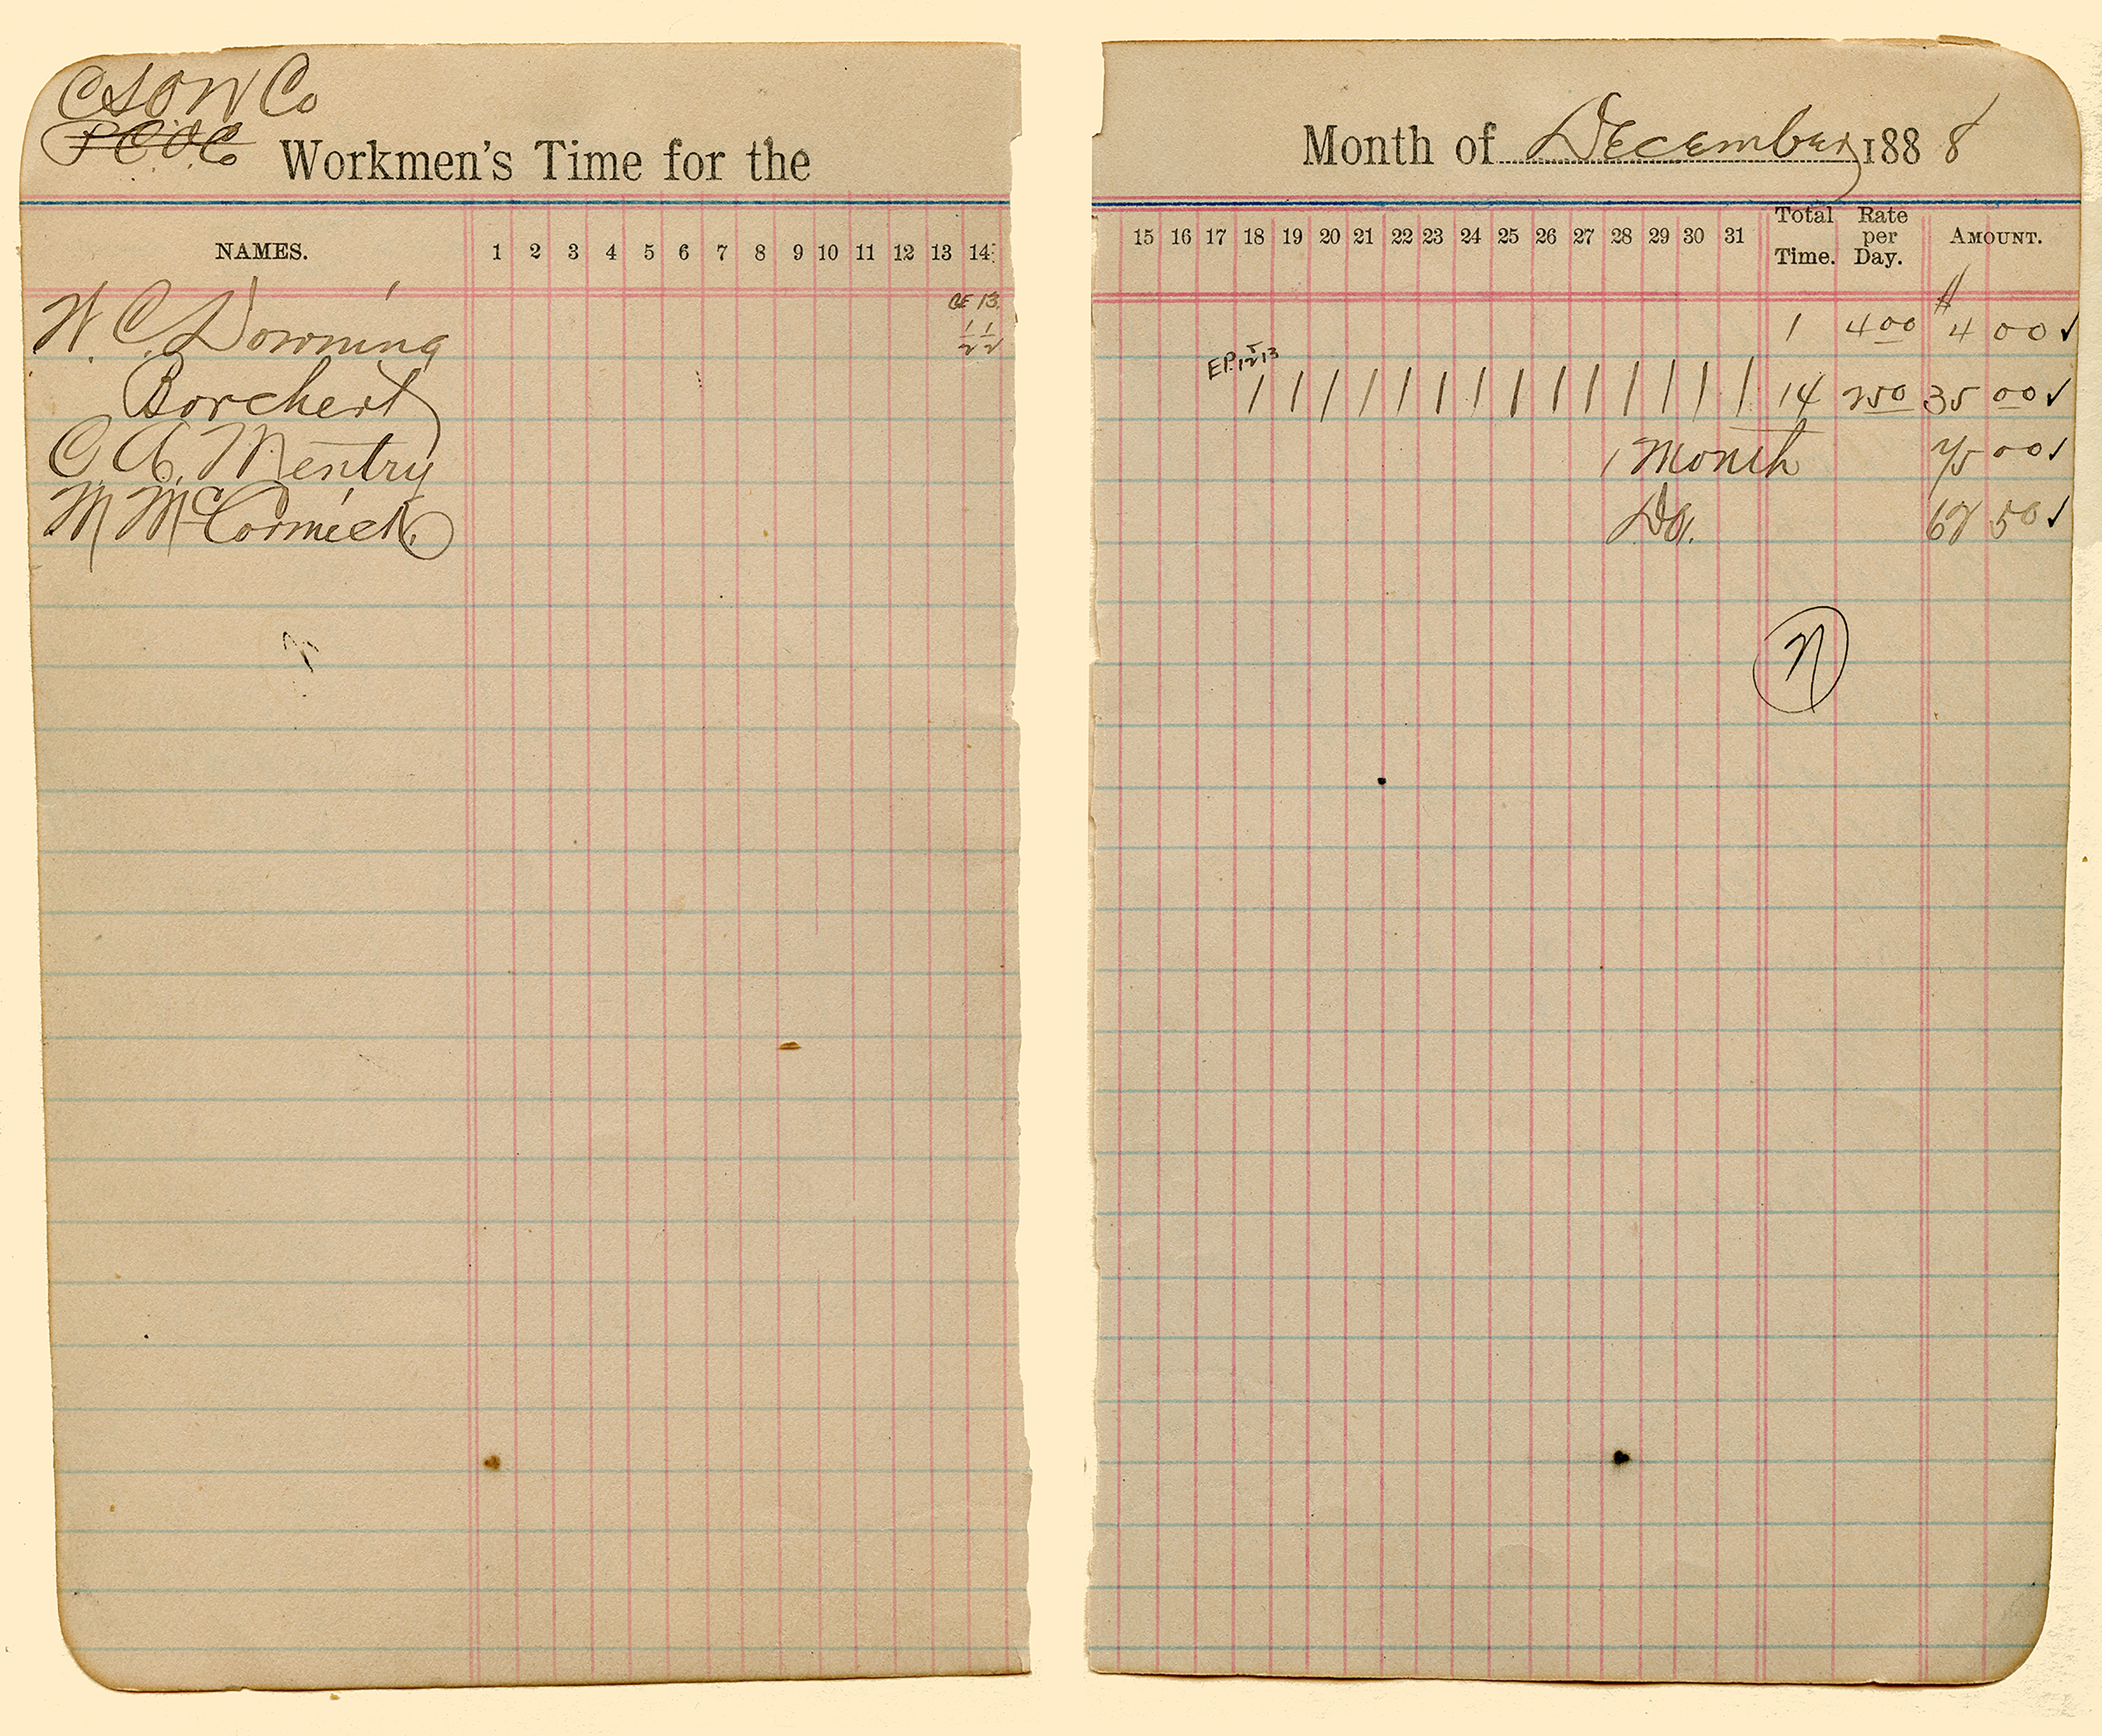 CSOW Co
P C O Co
Workmen's Time for the Month of December 1888
NAMES. 1 2 3 4 5 6 7 8 9 10 11 12 13 14 15 16 17 18 19 20 21 22 23 24 25 26 27 28 29 30 31 Total Time. Rate per Day. AMOUNT.
W. C. Downing 13 1/2 1/2 1 4 00 $ 4 00 ✓
Borchert / / / / / / / / / / / / / / 14 2 50 35 00 ✓
C. A. Mentry 1 Month 75 00 ✓
M McCormick Do. 67 50 ✓